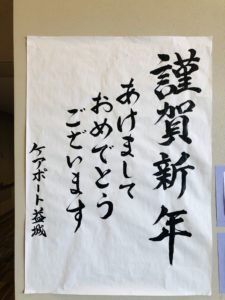 謹賀新年
あけまして
おめでとう
ございます
ケアポート益城